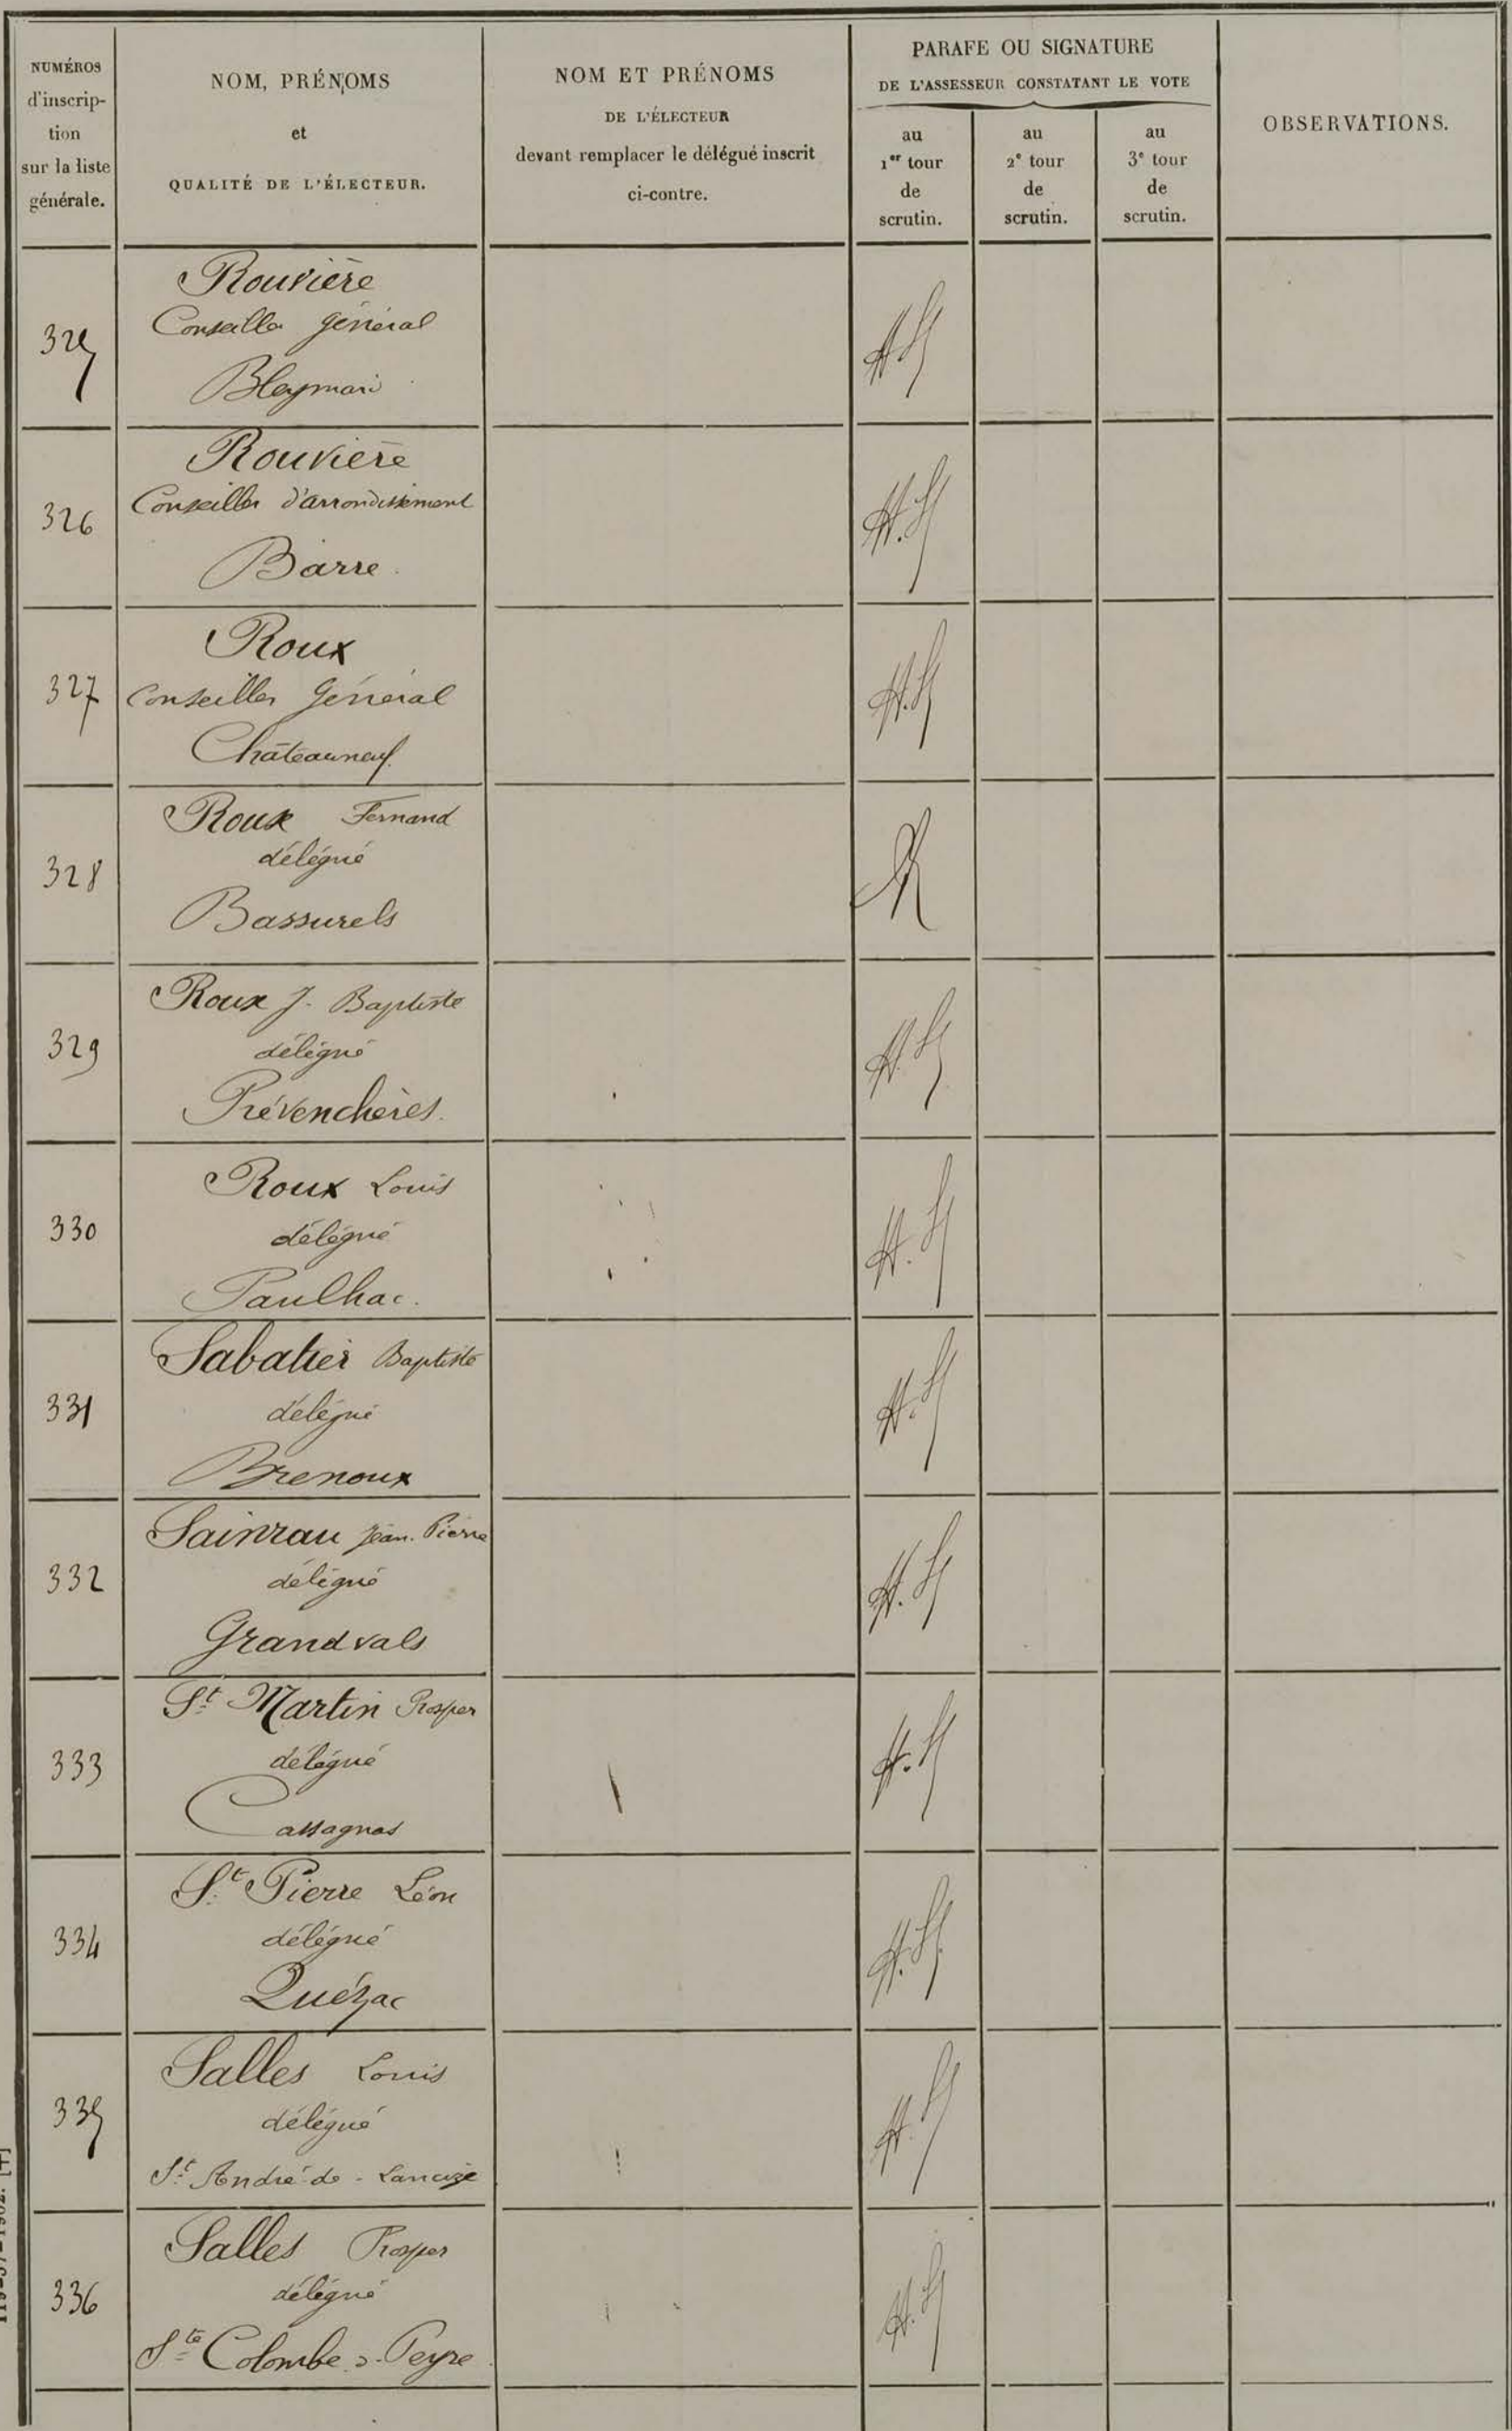 NUMÉROS
d'inscrip-
tion
sur la liste
générale.
NOM, PRÉNOMS
et
QUALITÉ DE L'ÉLECTEUR.
NOM ET PRÉNOMS
DE L'ÉLECTEUR
devant remplacer le délégué inscrit
ci-contre.
PARAFE OU SIGNATURE
DE L'ASSESSEUR CONSTATANT LE VOTE
au
1er tour
de
scrutin.
au
2e tour
de
scrutin.
au
3e tour
de
scrutin.
OBSERVATIONS.
325
Rouvière
Conseiller général
Bleymard
326
Rouvière
Conseiller d'arrondissement
Barre
327
Roux
Conseiller Général
Châteauneuf
328
Roux Fernand
délégué
Bassurels
329
Roux J. Baptiste
délégué
Prévenchères
330
Roux Louis
délégué
Paulhac.
331
Sabatier Baptiste
délégué
Brenoux
332
Sainrau Jean-Pierre
délégué
Grandvals
333
St Martin Prosper
délégué
Cassagnas
334
St Pierre Léon
délégué
Quézac
335
Salles Louis
délégué
St André-de-Lancize
336
Salles Prosper
délégué
Ste Colombe-d-Peyre